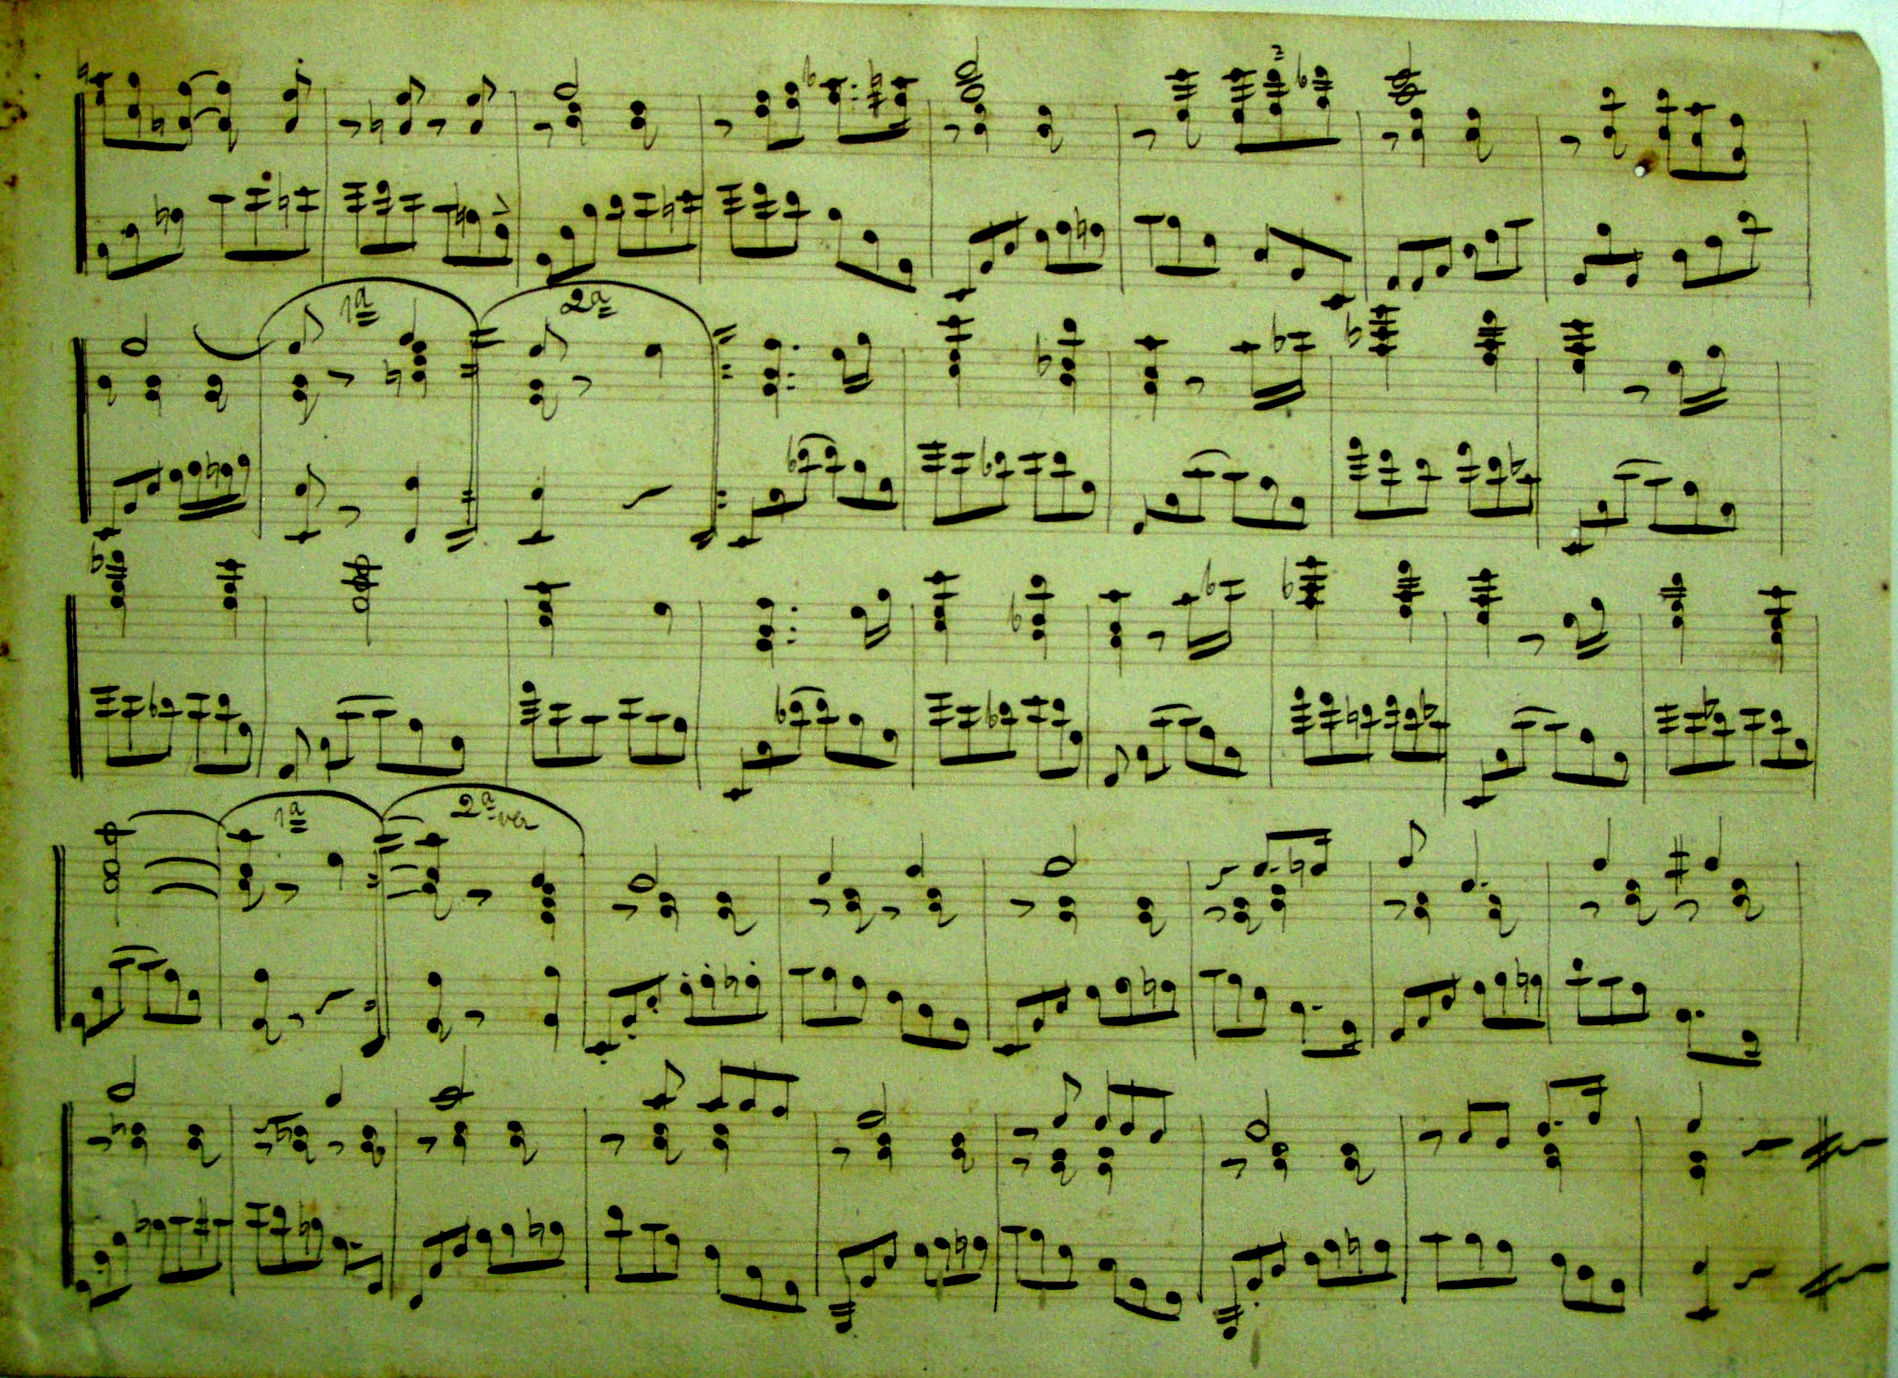 2
1ª
2ª
1ª
2ª vez